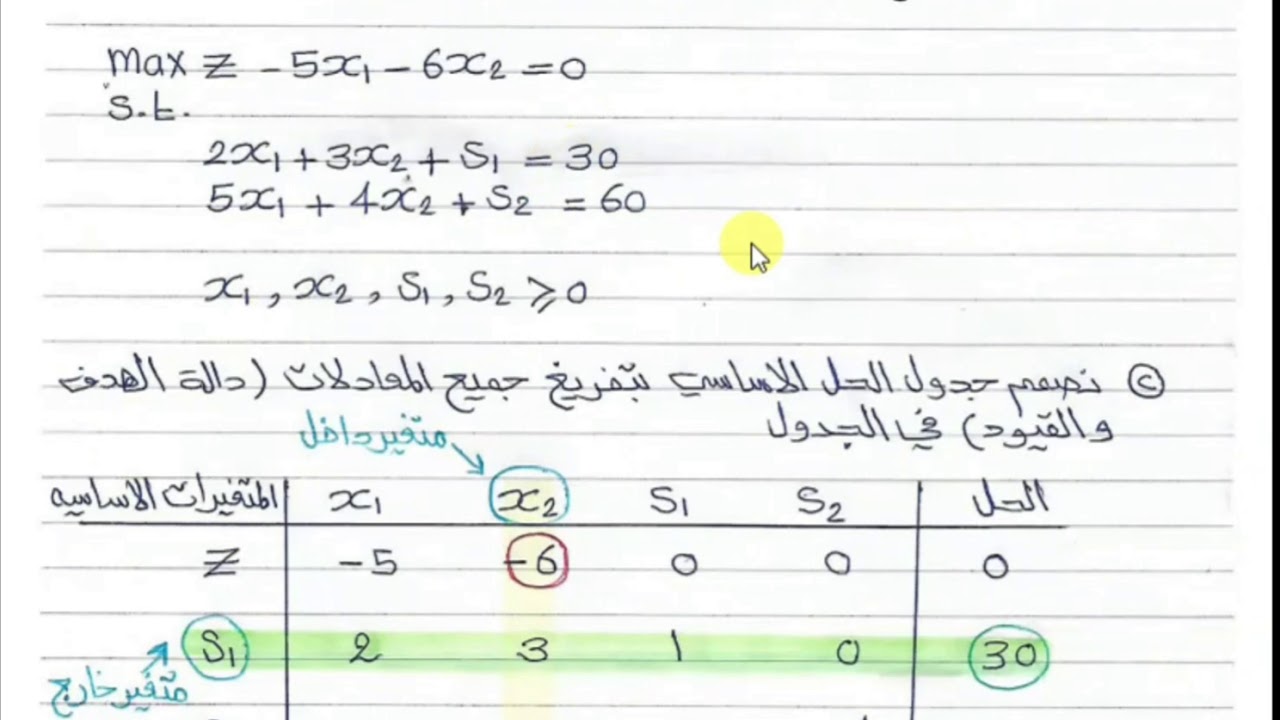 max Z - 5x₁ - 6x₂ = 0
S.t.
2x₁ + 3x₂ + S₁ = 30
5x₁ + 4x₂ + S₂ = 60
x₁ , x₂ , S₁ , S₂ ⩾ 0
ⓒ نصمم جدول الحل الاساسي بتفريغ جميع المعادلات (دالة الهدف
والقيود) في الجدول
متغير داخل
المتغيرات الاساسيه x₁ x₂ S₁ S₂ الحل
Z -5 -6 0 0 0
S₁ 2 3 1 0 30
متغير خارج